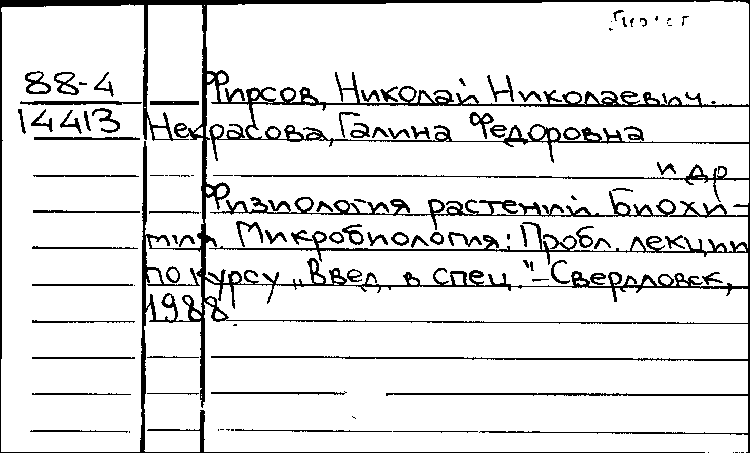 88-4 Фирсов, Николай Николаевич.
14413 Некрасова, Галина Федоровна
и др
Физиология растений. Биохи-
мия. Микробиология: Пробл. лекции
по курсу „Введ. в спец."-Свердловск,
1988.